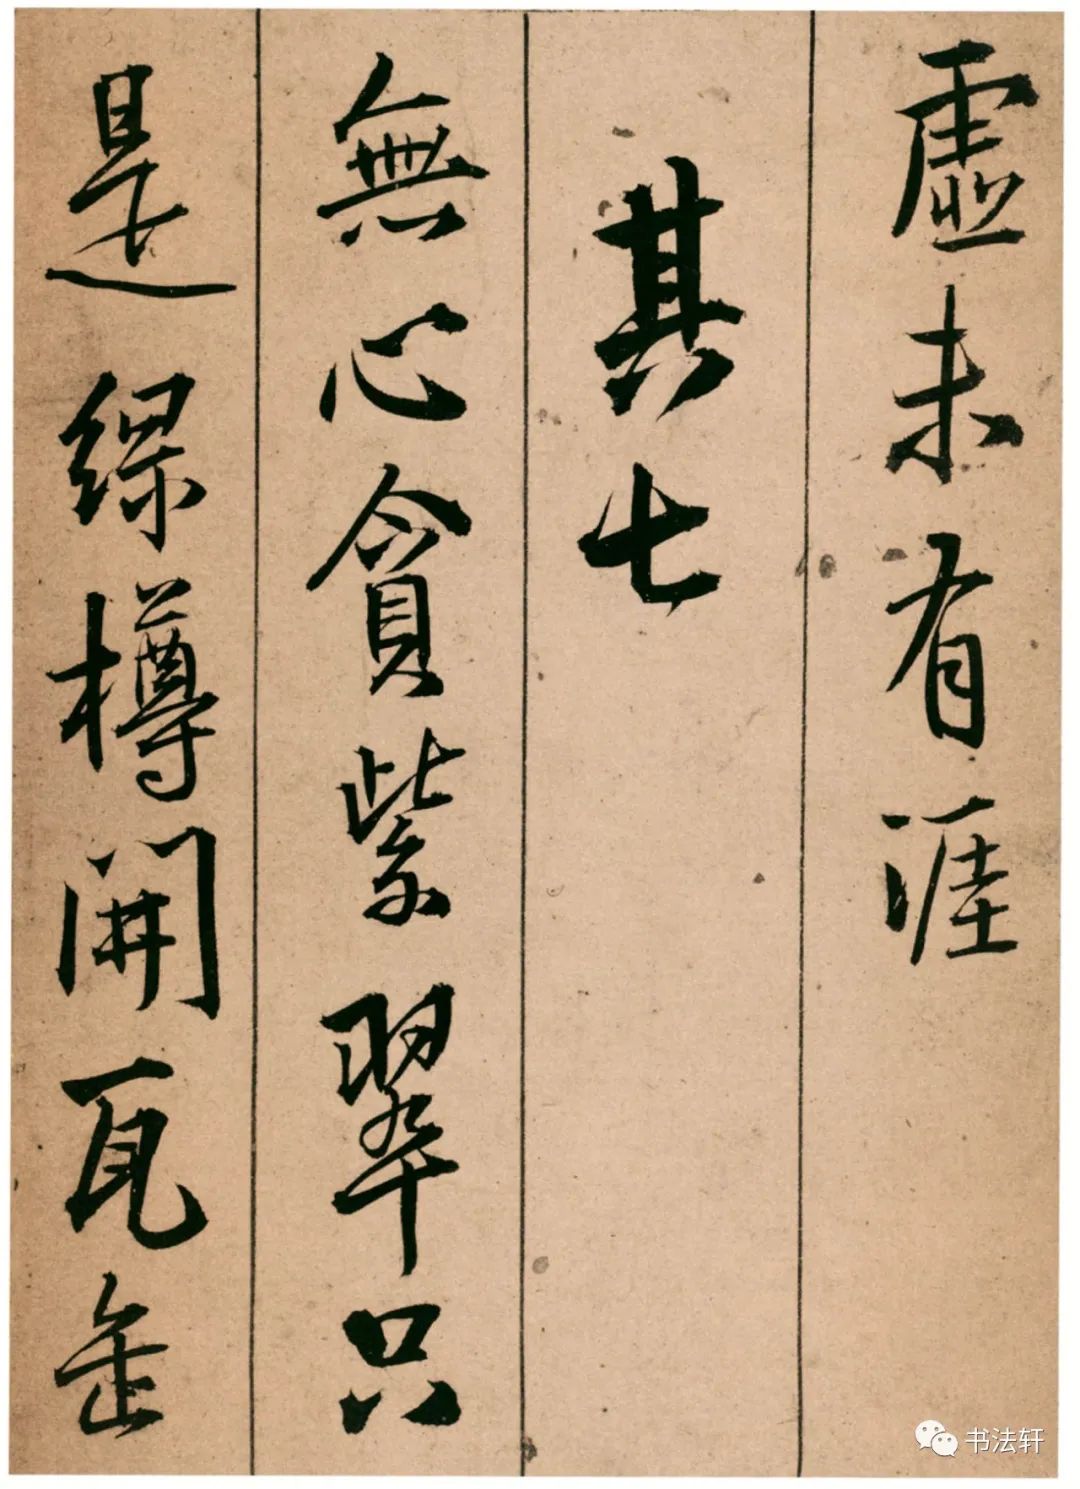 虛未有涯
其七
無心貪紫翠只
是綠樽開瓦缶
书法轩